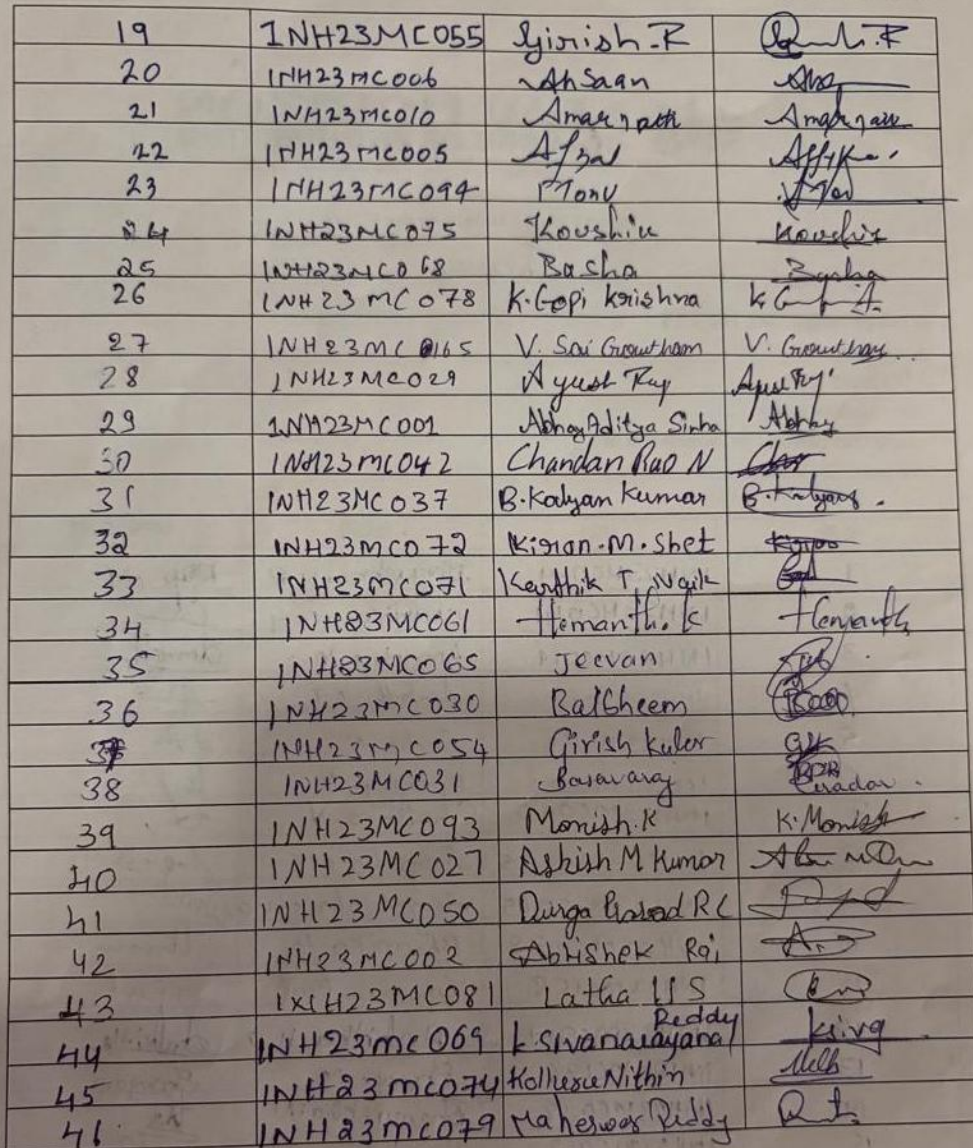 19 1NH23MC055 Girish.R
20 1NH23MC006 Ahsaan
21 1NH23MC010 Amarnath Amarnath
22 1NH23MC005 Afzal
23 1NH23MC094 Monu
24 1NH23MC075 Koushik Koushik
25 1NH23MC068 Basha Basha
26 1NH23MC078 K.Gopi Krishna
27 1NH23MC0165 V. Sai Growtham V. Growtham
28 1NH23MC029 Ayush Raj
29 1NH23MC001 Abhay Aditya Sinha Abhay
30 1NH23MC042 Chandan Rao N
31 1NH23MC037 B.Kalyan Kumar B.Kalyan
32 1NH23MC072 Kiran.M.Shet
33 1NH23MC071 Karthik T Naik
34 1NH23MC061 Hemanth.K Hemanth
35 1NH23MC065 Jeevan
36 1NH23MC030 Balbheem
37 1NH23MC054 Girish Kuler
38 1NH23MC031 Basavaraj
39 1NH23MC093 Monish.K K.Monish
40 1NH23MC027 Ashish M Kumar
41 1NH23MC050 Durga Prasad RC
42 1NH23MC002 Abhishek Raj
43 1NH23MC081 Latha U S
Reddy
44 1NH23MC069 K Sivanarayana Ksiva
45 1NH23MC074 Kolluru Nithin
1NH23MC079 Maheswar Reddy